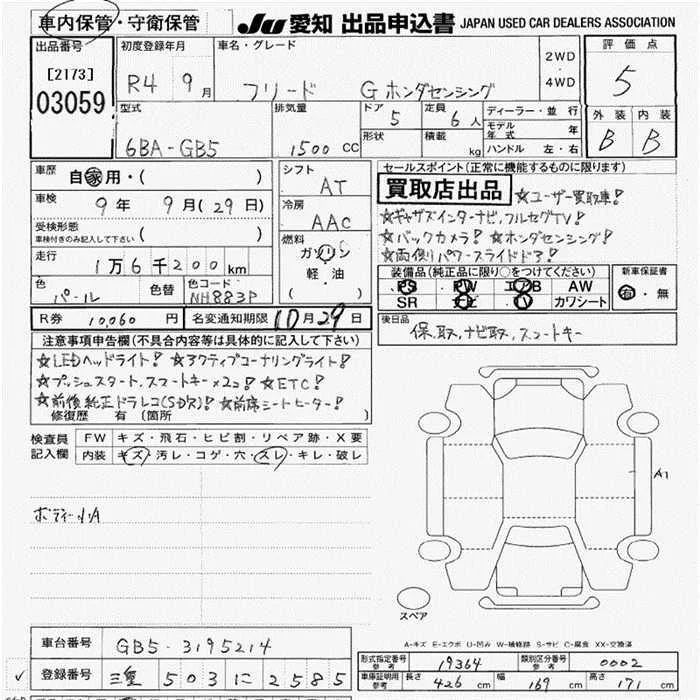 車内保管・守衛保管 JU 愛知 出品申込書 JAPAN USED CAR DEALERS ASSOCIATION
出品番号 初度登録年月 車名・グレード 2WD・4WD 評価点
[2173] R4 9月 フリード G ホンダセンシング 5
03059 型式 排気量 ドア 5 定員 6人 ディーラー・並行 外装 内装
6BA-GB5 1500 CC 形状 積載 kg モデル年式 年 B B
ハンドル 左・右
車歴 自家用・( ) シフト AT セールスポイント(正常に機能するものに限ります)
車検 9年 9月(29日) 冷房 AAC 買取店出品 ☆ユーザー買取車!
受検形態 車検付きのみ記入して下さい ( ) ☆ギャザズインターナビ,フルセグTV!
燃料 ガソリン ☆バックカメラ! ☆ホンダセンシング!
走行 1万6千200km 軽油 ☆両側パワースライドドア!
( ) 装備品(純正品に限り○をつけてください) 新車保証書
色 パール 色替 色コード NH883P PS PW エアB AW 有・無
SR ナビ TV カワシート
R券 10,060円 名変通知期限 10月29日 後日品 保,取,ナビ取,スマートキー
注意事項申告欄(不具合内容等は具体的に記入して下さい)
☆LEDヘッドライト! ☆アクティブコーナリングライト!
☆プッシュスタート,スマートキー×2コ! ☆ETC!
☆前後純正ドラレコ(SD欠)! ☆前席シートヒーター!
修復歴 有(箇所 )
検査員記入欄 FW キズ・飛石・ヒビ割・リペア跡・X要
内装 キズ・汚レ・コゲ・穴・スレ・キレ・破レ
A1
ボディー小A
スペア
A-キズ E-エクボ U-凹み W-補修跡 S-サビ C-腐食 XX-交換済
車台番号 GB5-3195214 形式指定番号 参考 19364 類別区分番号 参考 0002
登録番号 三重 503 に 2585 車庫証明用 参考 長さ 426cm 幅 169cm 高さ 171cm